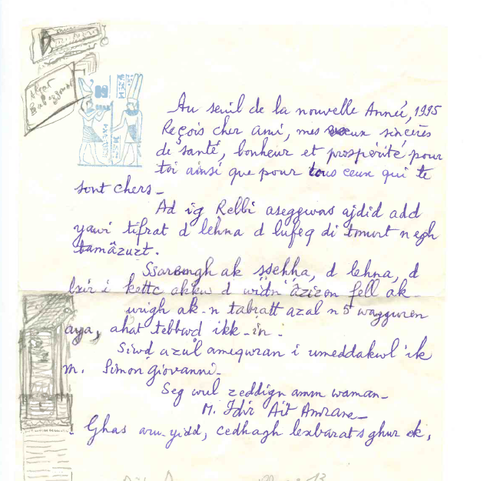 Alger
Bab
Au seuil de la nouvelle Année, 1995
Reçois cher ami, mes voeux sincères
de santé, bonheur et prospérité pour
toi ainsi que pour tous ceux qui te
sont chers_
Ad ig Rebbi aseggwas ajdid add
yawi tifrat d lehna d lufeq di tmurt negh
tamâzuzt.
Ssaremgh ak ssehha, d lehna, d
lxir i kečč akkw d widn âzizen fell ak_
urigh ak_n tabratt azal n 5 wagguren
aya, ahat tebbwd ikk_in_
Siwd azul ameqwran i umeddakwl ik
M. Simon Giovanni_
Seg wul zeddign amm waman_
M. Idir Ait Amrane_
Ghas aru yidd, cedhagh lexbarat sghur ek,